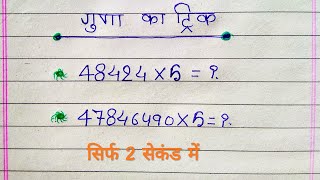 गुणा का ट्रिक
48424 × 5 = ?.
47846490 × 5 = ?.
सिर्फ 2 सेकंड में